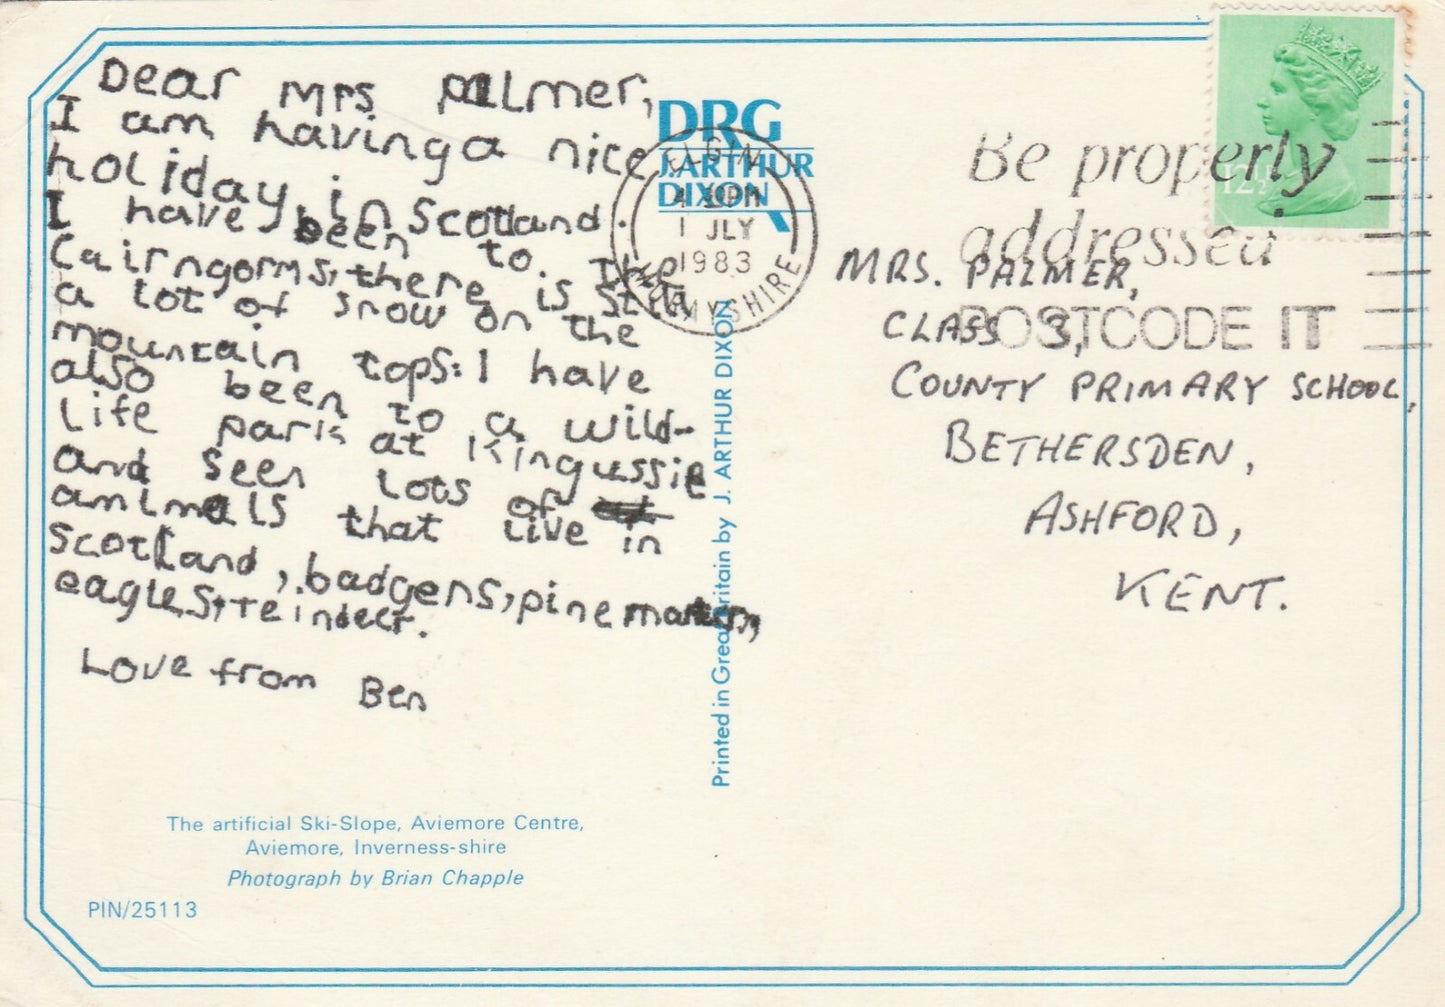 Dear Mrs Palmer,
I am having a nice
holiday in Scotland.
I have been to. The
Cairngorms, there is still
a lot of snow on the
mountain tops. I have
also been to a wild-
life park at Kingussie
and seen lots of
animals that live in
Scotland, badgers, pine martens,
eagles, reindeer.
Love from Ben
The artificial Ski-Slope, Aviemore Centre,
Aviemore, Inverness-shire
Photograph by Brian Chapple
PIN/25113
DRG
J.ARTHUR
DIXON
Printed in Great Britain by J. ARTHUR DIXON
ELGIN
1 JLY
1983
MORAYSHIRE
Be properly
addressed
POSTCODE IT
12½
MRS. PALMER,
CLASS 3,
COUNTY PRIMARY SCHOOL,
BETHERSDEN,
ASHFORD,
KENT.